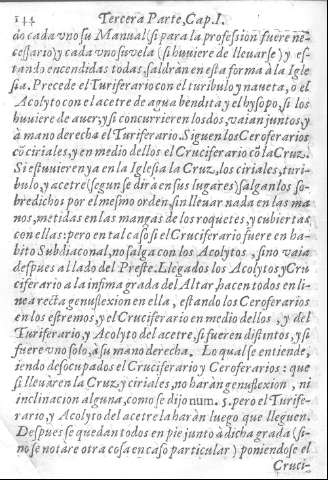 144 Tercera Parte, Cap. I.
do cada vno su Manual (si para la profession fuere ne-
cessario) y cada vno su vela (si huuiere de lleuarse) y es-
tando encendidas todas, saldràn en esta forma à la Igle
sia. Precede el Turiferario con el turibulo y naueta, o el
Acolyto con el acetre de agua bendita y el hysopo, si los
huuiere de auer, y si concurrieren los dos, vaian juntos, y
à mano derecha el Turiferario. Siguen los Ceroferarios
cõ ciriales, y en medio dellos el Cruciferario cõ la Cruz.
Si estuuieren ya en la Iglesia la Cruz, los ciriales, turi-
bulo, y acetre (segun se dirà en sus lugares) salgan los so-
bredichos por el mesmo orden, sin lleuar nada en las ma
nos, metidas en las mangas de los roquetes, y cubiertas
con ellas: pero en tal caso si el Cruciferario fuere en ha-
bito Subdiaconal, no salga con los Acolytos, sino vaia
despues al lado del Preste. Llegados los Acolytos y Cru
ciferario a la infima grada del Altar, hacen todos en li-
nea recta genuflexion en ella, estando los Ceroferarios
en los estremos, y el Cruciferario en medio dellos, y del
Turiferario, y Acolyto del acetre, si fueren distintos, y si
fuere vno solo, à su mano derecha. Lo qual se entiende,
iendo desocupados el Cruciferario y Ceroferarios: que
si lleuàren la Cruz y ciriales, no haràn genuflexion, ni
inclinacion alguna, como se dijo num. 5. pero el Turife-
rario, y Acolyto del acetre la haràn luego que lleguen.
Despues se quedan todos en pie junto à dicha grada (si-
no se notàre otra cosa en caso particular) poniendose el
Cruci-